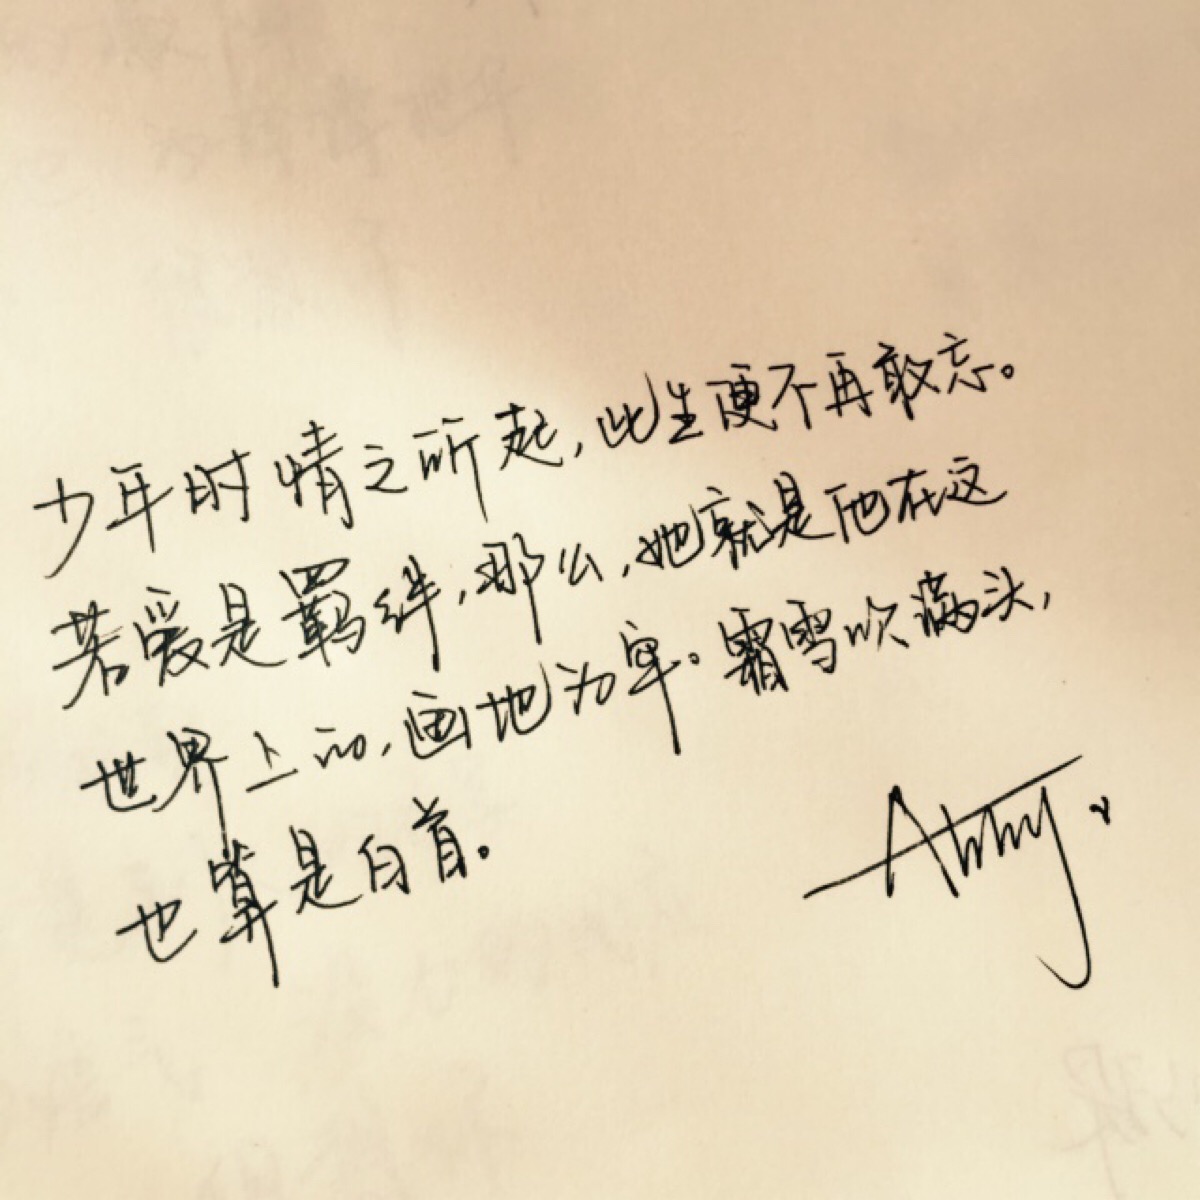 少年时情之所起,此生便不再敢忘。
若爱是羁绊,那么,她就是他在这
世界上的,画地为牢。霜雪吹满头,
也算是白首。
Abby.